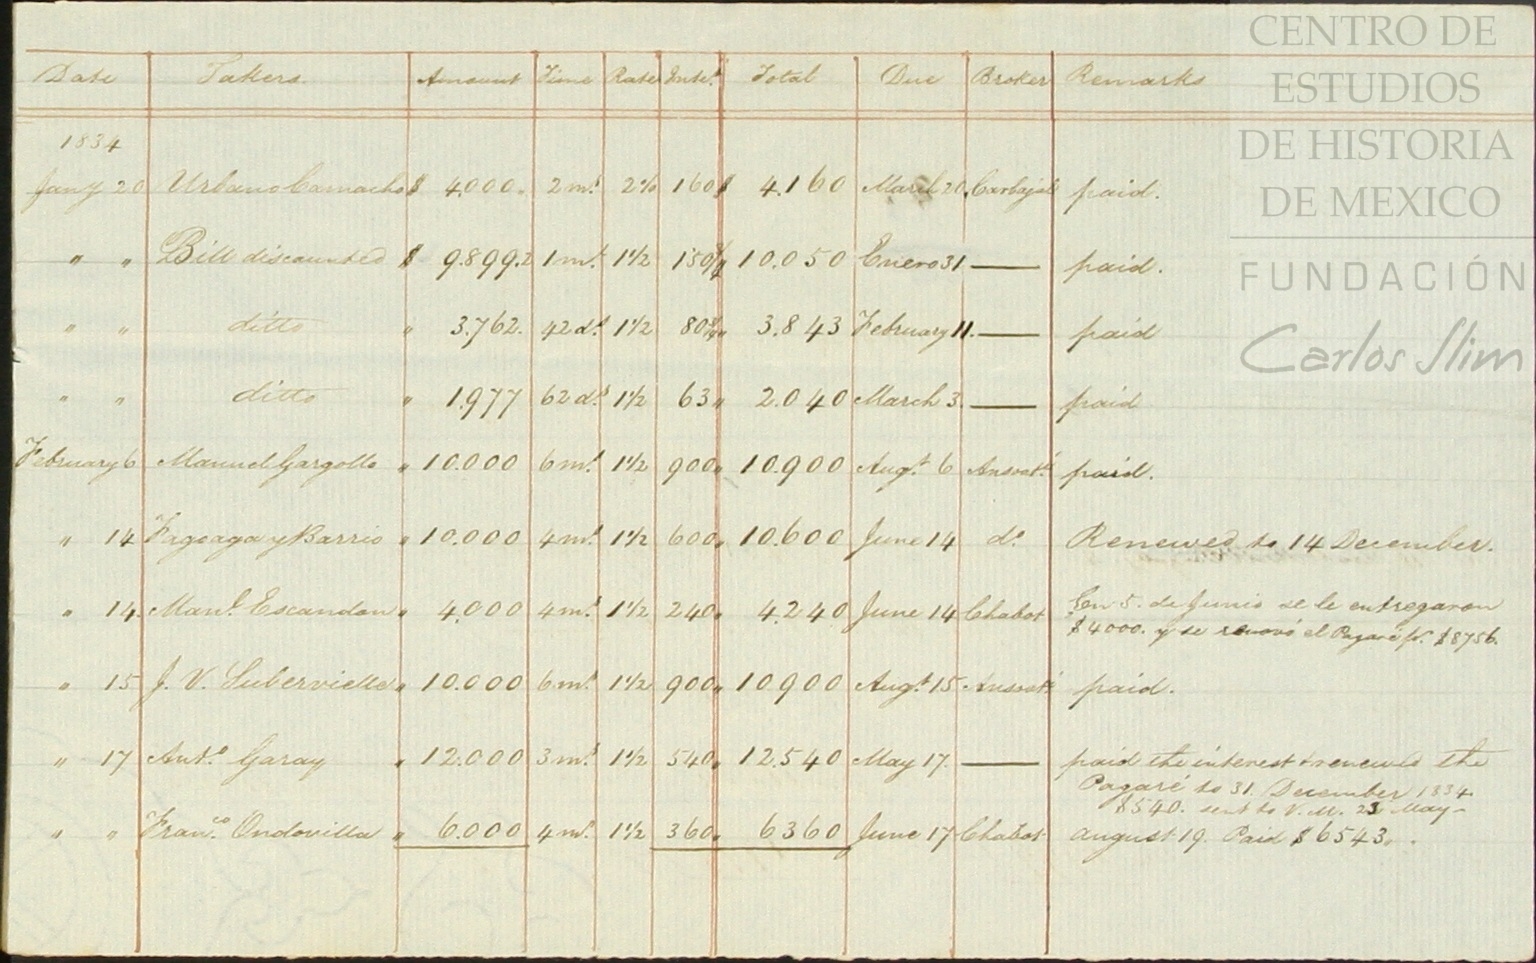 CENTRO DE
ESTUDIOS
DE HISTORIA
DE MEXICO
FUNDACIÓN
Carlos Slim
Date Takers Amount Time Rate Intt. Total Due Broker Remarks
1834
Jany 20 Urbano Camacho $ 4.000. 2 ms. 2% 160 $ 4.160 March 20, Carbajal paid.
" " Bill discounted $ 9.899.2 1 mt. 1 1/2 150 " 10.050 Enero 31 — paid.
" " ditto " 3.762. 42 ds. 1 1/2 80 " 3.843 February 11. — paid
" " ditto " 1.977 62 ds. 1 1/2 63 " 2.040 March 3. — paid
February 6 Manuel Gargollo " 10.000 6 ms. 1 1/2 900 " 10.900 Augt. 6 paid.
" 14 Fagoaga y Barrio " 10.000 4 ms. 1 1/2 600 " 10.600 June 14 do. Renewed to 14 December.
" 14 Manl. Escandon " 4.000 4 ms. 1 1/2 240 " 4.240 June 14 Chabot En 5. de Junio se le entregaron
$4000. y se renovó el Pagaré pr. $8756.
" 15 J. V. Subervielle " 10.000 6 ms. 1 1/2 900 " 10.900 Augt. 15 paid.
" 17 Anto. Garay " 12.000 3 ms. 1 1/2 540 " 12.540 May 17. — paid the interest & renewed the
Pagaré to 31. December 1834.
$540. sent to V. M. 23 May—
" " Franco. Ondovilla " 6.000 4 ms. 1 1/2 360 " 6360 June 17 Chabot august 19. Paid $6543 " .